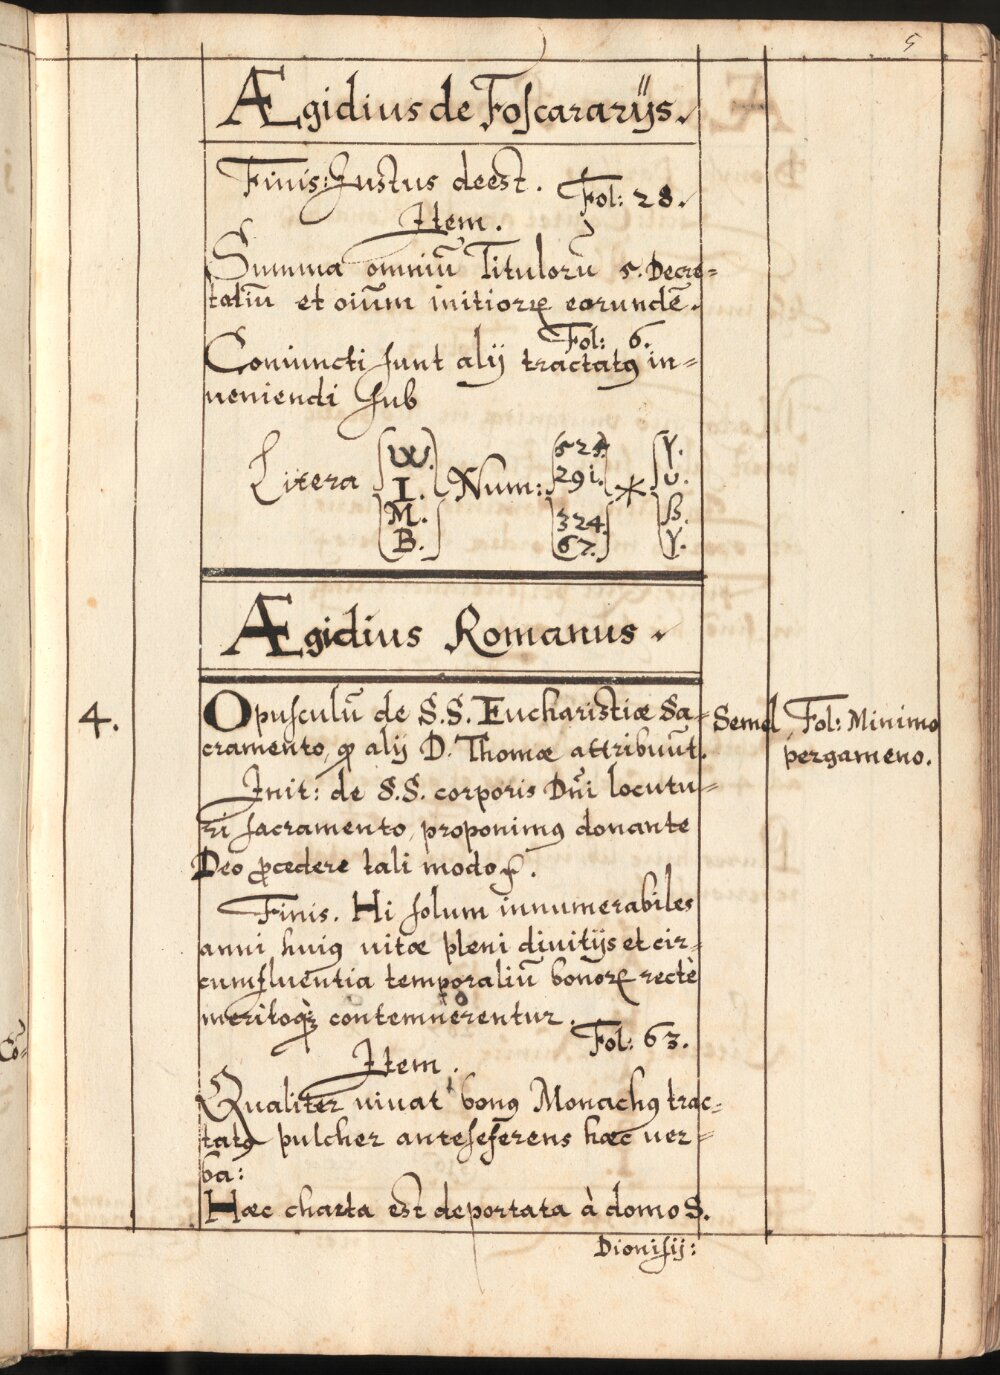 5
Ægidius de Foscararijs.
Finis: Justus deest. Fol: 28.
Item.
Summa omniũ Titulorũ 5. Decre=
taliũ et oiũm initiorꝝ eorundẽ.
Fol: 6.
Coniuncti sunt alij tractatꝰ in=
ueniendi sub
Litera W. I. M. B. Num: 524. 291. 324. 67. * Y. U. ß. Y.
Ægidius Romanus.
4. Opusculũ de S.S. Eucharistiæ Sa= Semel Fol: Minimo
cramento, qͦ alij D. Thomæ attribuũt. pergameno.
Init: de S.S. corporis Dñi locutu=
ri sacramento, proponimꝰ donante
Deo ꝓcedere tali modo
Finis. Hi solum innumerabiles
anni huiꝰ uitæ pleni diuitijs et cir=
cumfluentia temporaliũ bonorꝝ rectè
meritoqꝫ̀ contemnerentur.
Fol: 63.
Item.
Qualiter uiuat bonꝰ Monachꝰ trac=
tatꝰ pulcher anteseferens hæc uer=
ba:
Hæc charta est deportata à domo S.
Dionisij:
Co=